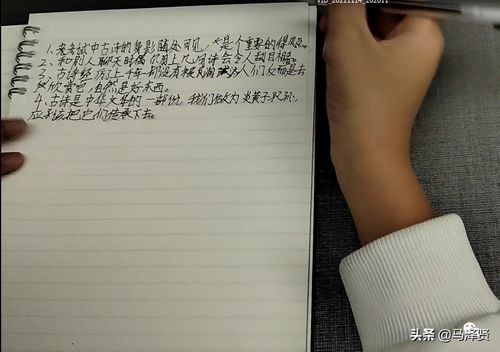 VID_20211114_202011
1、来考试中古诗的身影随处可见，是个重要的得分点。
2、和别人聊天时偶尔用上几句诗会令人刮目相看。
3、古诗经历上千年都没有被人们反而是去
欣赏它，自然是好东西。
4、古诗是中华文华的一部份，我们做为炎黄子孙，
应该把它们传承下去。
头条 @马泽贤